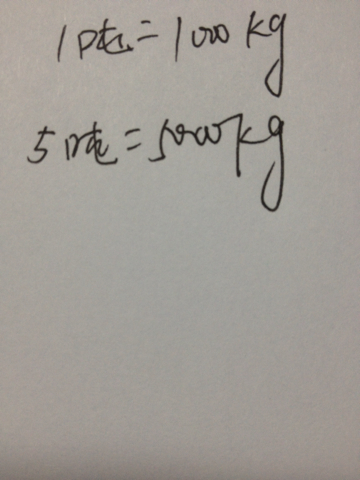 1吨=1000kg
5吨=5000kg